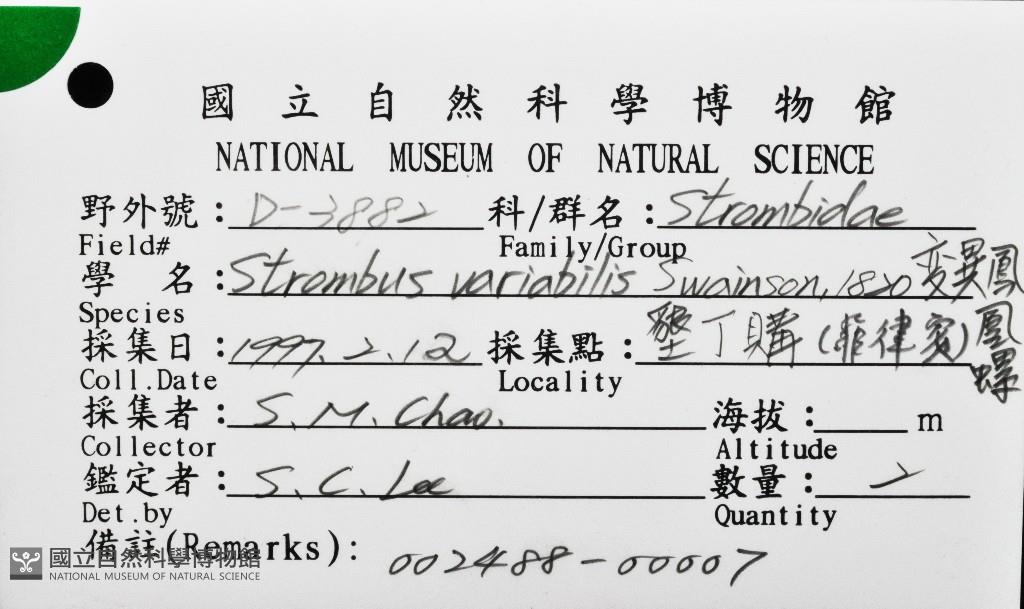 國立自然科學博物館
NATIONAL MUSEUM OF NATURAL SCIENCE
野外號：D-3882 科/群名：Strombidae
Field# Family/Group
學 名：Strombus variabilis Swainson, 1820 變異鳳凰螺
Species
採集日：1997. 2. 12 採集點：墾丁購(菲律賓)
Coll.Date Locality
採集者：S. M. Chao. 海拔：m
Collector Altitude
鑑定者：S. C. Lee 數量：2
Det.by Quantity
備註(Remarks)：002488-00007
國立自然科學博物館
NATIONAL MUSEUM OF NATURAL SCIENCE